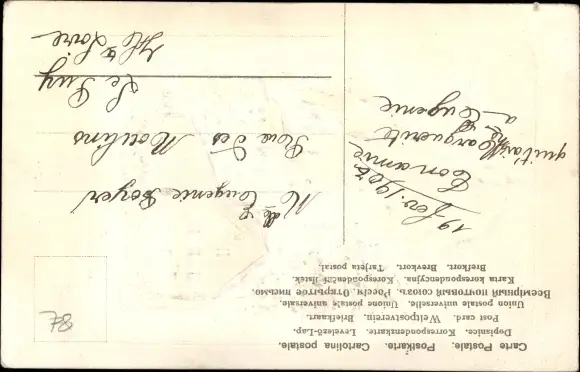 Carte Postale. Postkarte. Cartolina postale.
Dopisnice. Korrespondenzkarte. Levelező-Lap.
Post card. Weltpostverein. Briefkaart.
Union postale universelle. Unione postale universale.
Всемірный почтовый союзъ. Россія. Открытое письмо.
Karta korespondencyjna. Korespondenční listek.
Brefkort. Brevkort. Tarjeta postal.
19 fev. 1906.
Ton amie
Marguerite
a Eugenie
Mlle Eugenie Boyer
Rue des Moulins
Le Puy
Hte Loire